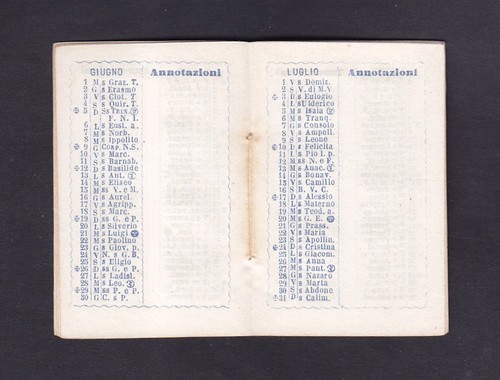 GIUGNO
Annotazioni
1 M s Graz. T.
2 G s Erasmo
3 V s Clot. T
4 S s Quir. T.
5 D SS TRIN.
F. N. I.
6 L s Eust. a.
7 M s Norb.
8 M s Ippolito
9 G CORP. N.S.
10 V s Marc.
11 S s Barnab.
12 D s Basilide
13 L s Ant.
14 M s Eliseo
15 M ss V. e M.
16 G s Aurel.
17 V s Agripp.
18 S s Marc.
19 D ss G. e P.
20 L s Silverio
21 M s Luigi
22 M s Paolino
23 G s Giov. p.
24 V N. s G. B.
25 S s Eligio
26 D ss G. e P.
27 L s Ladisl.
28 M s Leo.
29 M ss P. e P.
30 G C. s P.
LUGLIO
Annotazioni
1 V s Domiz.
2 S V. di M.V.
3 D s Eulogio
4 L s Ulderico
5 M s Isaia
6 M s Tranq.
7 G s Consolo
8 V s Ampell.
9 S s Leone
10 D s Felicita
11 L s Pio I. p.
12 M ss N. e F.
13 M s Anac.
14 G s Bonav.
15 V s Camillo
16 S B. V. C.
17 D s Alessio
18 L s Materno
19 M s Teod. a.
20 M s G. E.
21 G s Prass.
22 V s Maria
23 S s Apollin.
24 D s Cristina
25 L s Giacom.
26 M s Anna
27 M s Pant.
28 G s Nazaro
29 V s Marta
30 S s Abdone
31 D s Calim.